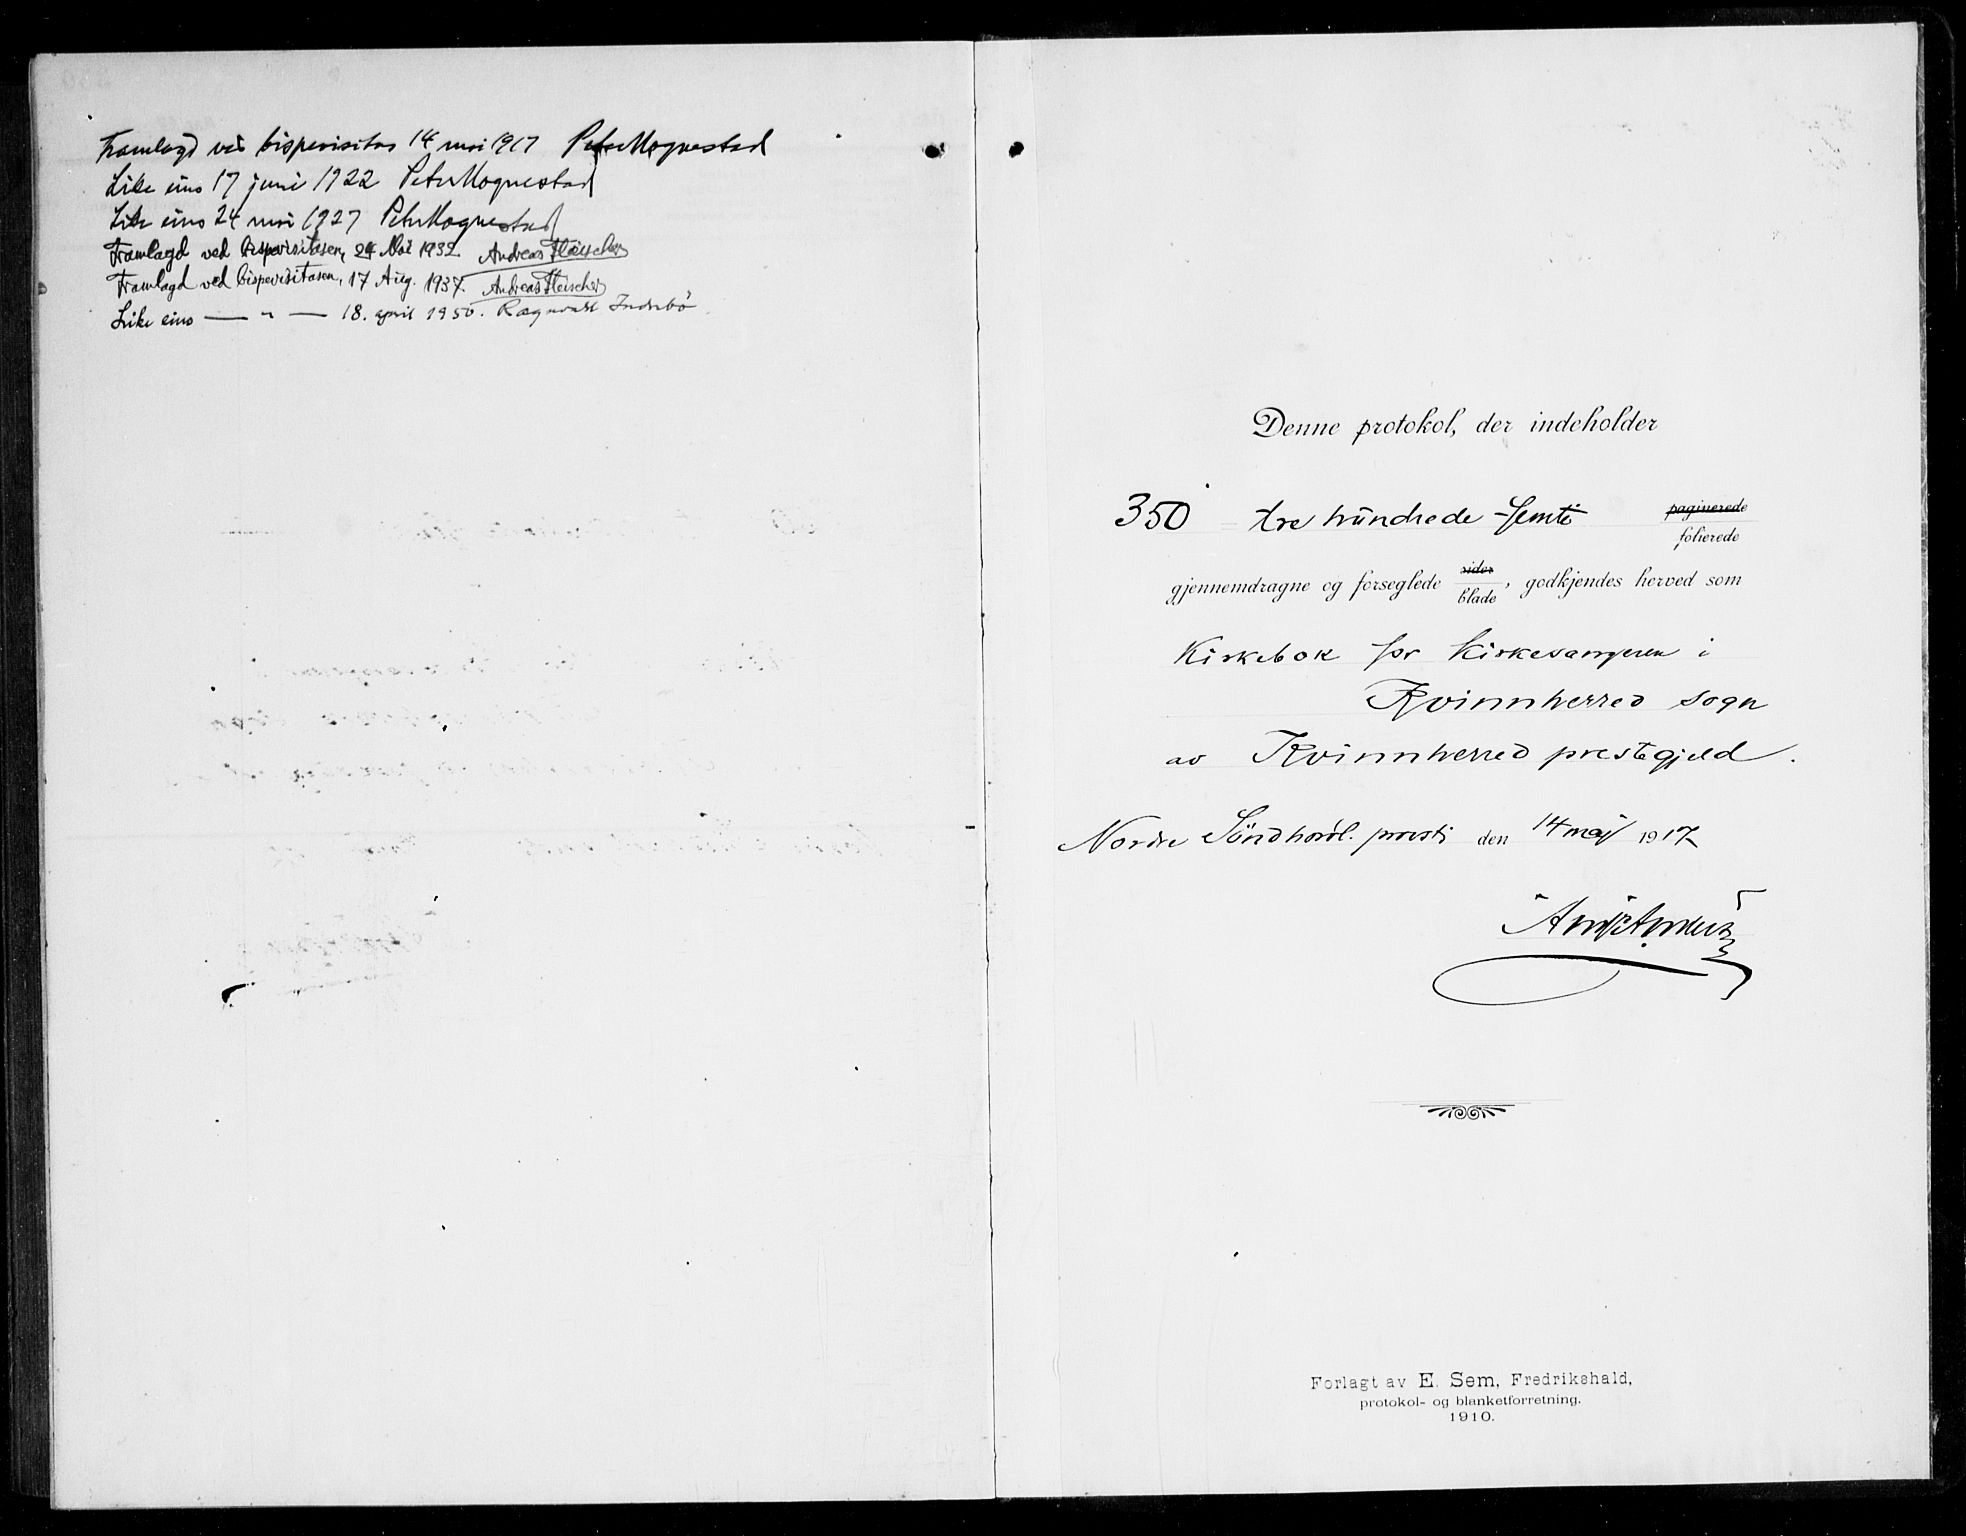 Framlagd ved bispevisitas 14 mai 1917 Peter Hognestad
Like eins 17 juni 1922 Peter Hognestad
Like eins 24 mai 1927 Peter Hognestad
Framlagd ved bispevisitasen, 24 Mai 1932. Andreas Fleischer
Framlagd ved bispevisitasen, 17 Aug. 1937. Andreas Fleischer
Like eins — " — 18. april 1950. Ragnvald Indrebø
Denne protokol, der indeholder
350 tre hundrede femti paginerede
folierede
gjennemdragne og forseglede sider
blade, godkjendes herved som
Kirkebok for kirkesangeren i
Kvinnherred sogn
av Kvinnherred prestegjeld.
Nordre Söndhordl. prosti den 14 maj 1917
Forlagt av E. Sem, Fredrikshald,
protokol- og blanketforretning.
1910.